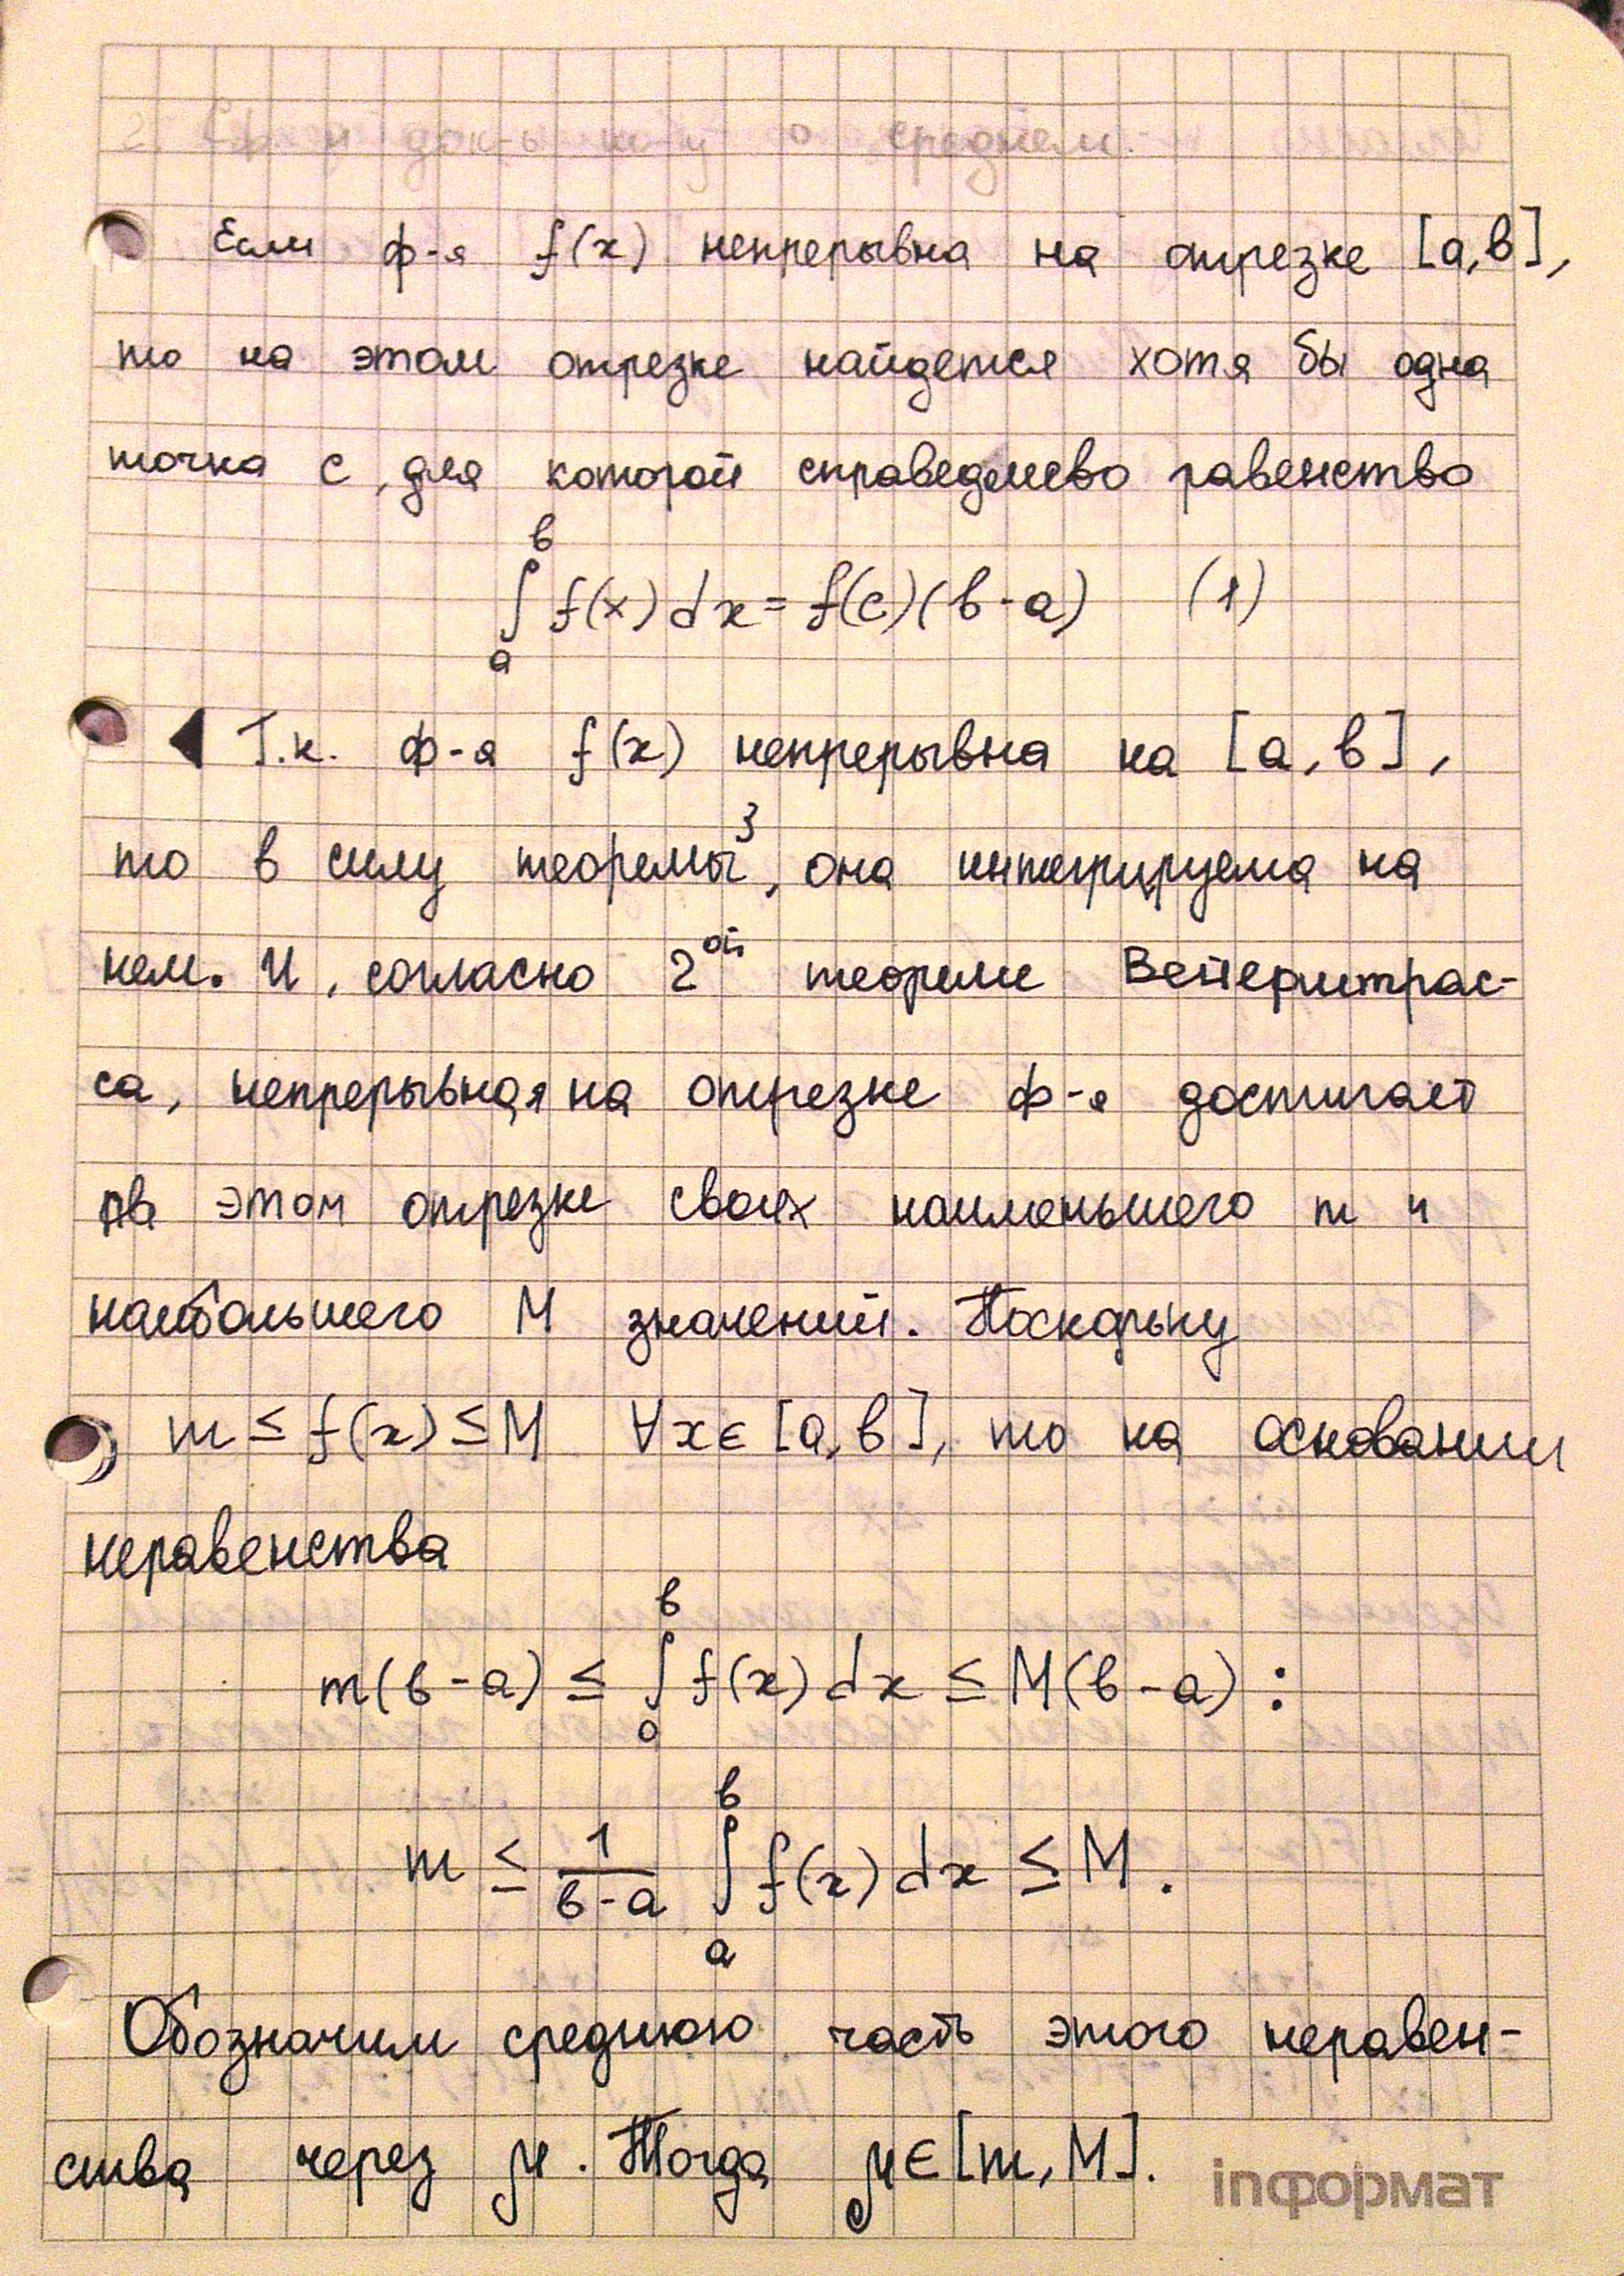 2. Сф. и док-ь т-у о среднем.
Если ф-я f(x) непрерывна на отрезке [a,b],
то на этом отрезке найдется хотя бы одна
точка c, для которой справедливо равенство
b
∫ f(x)dx = f(c)(b-a) (1)
a
◀ Т.к. ф-я f(x) непрерывна на [a,b],
то в силу теоремы 3, она интегрируема на
нем. И, согласно 2ой теореме Вейерштрас-
са, непрерывная на отрезке ф-я достигает
на этом отрезке своих наименьшего m и
наибольшего M значений. Поскольку
m ≤ f(x) ≤ M ∀x∈[a,b], то на основании
неравенства
b
m(b-a) ≤ ∫ f(x)dx ≤ M(b-a):
a
b
m ≤ 1/(b-a) ∫ f(x)dx ≤ M.
a
Обозначим среднюю часть этого неравен-
ства через μ. Тогда μ∈[m,M].
inформат